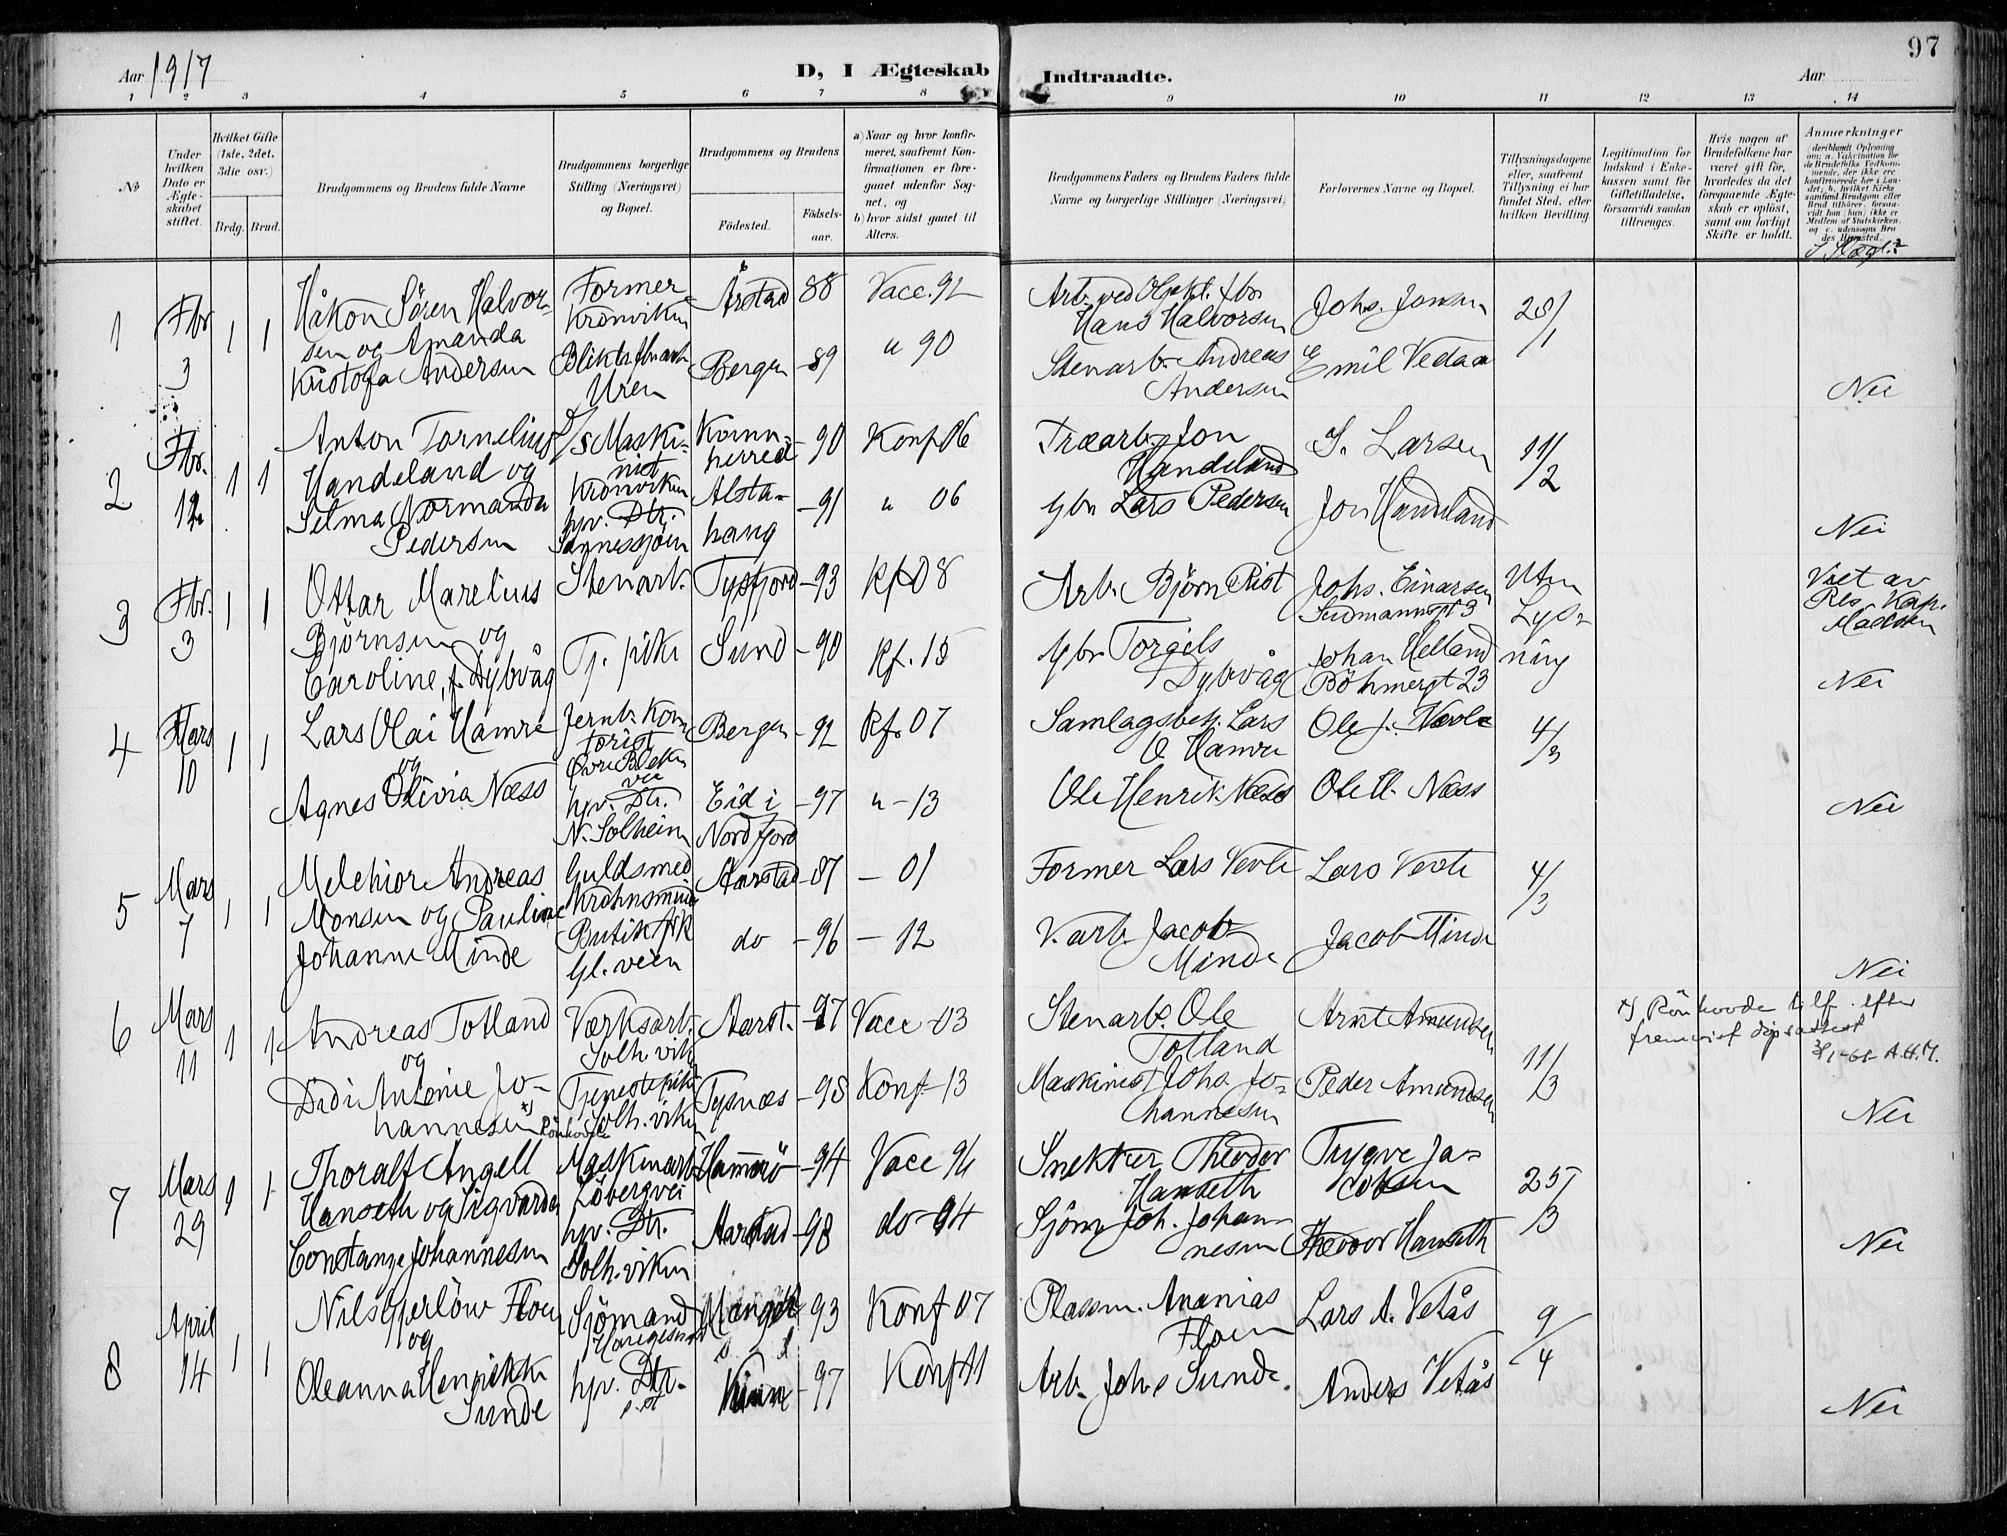 97
Aar 1917
D, I Ægteskab Indtraadte.
Aar
1 2 3 4 5 6 7 8 9 10 11 12 13 14
No
Under hvilken Dato er Ægteskabet stiftet.
Hvilket Gifte (1ste, 2det, 3die osv.)
Brdg. Brud.
Brudgommens og Brudens fulde Navne
Brudgommens borgerlige Stilling (Næringsvei) og Bopæl.
Brudgommens og Brudens
Födested.
Födselsaar.
a) Naar og hvor konfirmeret, saafremt Konfirmationen er foregaaet udenfor Sognet, og
b) hvor sidst gaaet til Alters.
Brudgommens Faders og Brudens Faders fulde Navne og borgerlige Stillinger (Næringsvei)
Forlovernes Navne og Bopæl.
Tillysningsdagene eller, saafremt Tillysning ei har fundet Sted, efter hvilken Bevilling.
Legitimation for Indskud i Enkekassen samt for Giftetilladelse, forsaavidt saadan tiltrænges.
Hvis nogen af Brudefolkene har været gift för, hvorledes da det foregaaende Ægteskab er oplöst, samt om lovligt Skifte er holdt.
Anmerkninger
(deriblandt Oplysning om: a. Vakcination for de Brudefolks Vedkommende, der ikke ere konfirmerede her i Landet; b. hvilket Kirkesamfund Brudgom eller Brud tilhörer, forsaavidt han (hun) ikke er Medlem af Statskirken, og c. udensogns Brudes Hjemsted.
I Slægt?
1 Fbr 3 1 1
Håkon Sören Halvorsen og Amanda Kristofa Andersen
Former Kronviken
Årstad 88 Vacc. 92
Uren
Bergen -89 " 90
Hans Halvorsen
Stenarb. Andreas Andersen
Johs. Jonsen
Emil Vedaa
28/1
Nei
2 Fbr. 12 1 1
Anton Tornelius Handeland og
Selma Normanda Pedersen
D/S Maskinist Kronviken
hjv. Dtr. Sannessjöen
Kvinnherred -90 Konf 06
Alstahaug -91 " 06
Træarb. Jon Handeland
Gbr Lars Pedersen
S. Larsen
Jon Handeland
11/2
Nei
3 Fbr. 3 1 1
Ottar Marelius Björnsen og
Caroline, f. Dybvåg
Stenarb.
Tj. pike
Tysfjord -93 Kf 08
Sund -90 Kf. 15
Arb. Bjørn Rist
Gbr Torgels Dybvåg
Johs. Einarsen
Sudmannsgt 3
Johan Helland
Böhmergt 23
Uten Lysning
Viet av Res. Kap. Madsen
Nei
4 Mars 10 1 1
Lars Olai Hamre og
Agnes Olivia Næss
Jernb. Kontorist
Øvre Blekeveii
hjv. Dtr.
N. Solheim
Bergen -92 Kf. 07
Eid i Nordfjord -97 " -13
Samlagsbet. Lars O Hamre
Ole Henrik Næss
Ole J. Nævle
Ole H. Næss
4/3
Nei
5 Mars 7 1 1
Melchior Andreas Monsen og Pauline Johanne Minde
Guldsmed Krohnsminde
Butikfrk Gl. veien
Aarstad -87 - 01
do -96 - 12
Former Lars Vevle
V. arb. Jacob Minde
Lars Vevle
Jacob Minde
4/3
Nei
6 Mars 11 1 1
Andreas Totland og
Didi Antonie Johannesen x) Rönhovde
Værksarb. Solh. vik
Tjenestepike Solh. viken
Aarst. -97 Vacc -03
Tysnæs -98 Konf -13
Stenarb. Ole Totland
Maskinist Johs. Johannesen
Arnt Amundsen
Peder Amundsen
11/3
x) Rönhovde tilf. efter fremvist dåpsattest
3/1-61 A.H.M.
Nei
7 Mars 29 1 1
Thoralf Angell Hanseth og Sigvarda Constanze Johannesen
Maskinarb Löbergvei
hjv. Dtr. Solh. viken
Hammerö -94 Vacc 96
Aarstad -98 do -94
Snekker Theodor Hanseth
Sjöm Joh. Johannesen
Trygve Jacobsen
Theodor Hanseth
25/3
Nei
8 April 14 1 1
Nils Gjerlöw Floen og
Oleanna Henrikke Sunde
Sjömand
hjv. Dtr.
Manger 93 Konf 07
Kinn -97 Konf 11
Plassm. Ananias Floen
Arb. Johs Sunde.
Lars A. Vetås
Anders Vetås
9/4
Nei